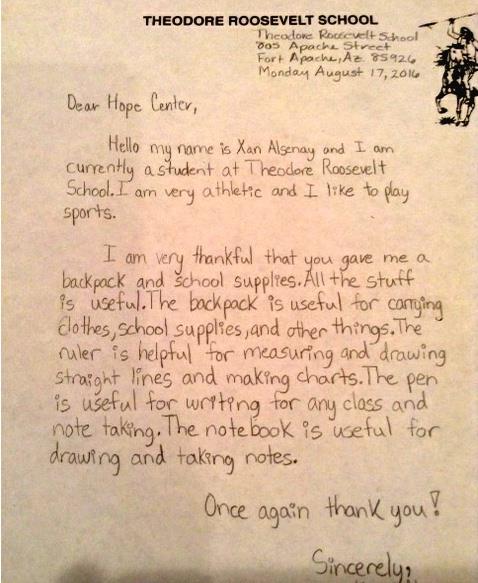 THEODORE ROOSEVELT SCHOOL
Theodore Roosevelt School
805 Apache Street
Fort Apache, Az 85926
Monday August 17, 2016
Dear Hope Center,
Hello my name is Xan Alsenay and I am
currently a student at Theodore Roosevelt
School. I am very athletic and I like to play
sports.
I am very thankful that you gave me a
backpack and school supplies. All the stuff
is useful. The backpack is useful for carrying
clothes, school supplies, and other things. The
ruler is helpful for measuring and drawing
straight lines and making charts. The pen
is useful for writing for any class and
note taking. The notebook is useful for
drawing and taking notes.
Once again thank you!
Sincerely,